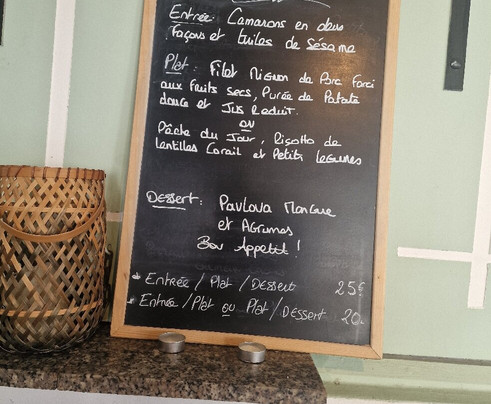 Entrée: Camarons en deux
façons et tuiles de Sésame
Plat: Filet Mignon de Porc Farci
aux fruits secs, Purée de Patate
douce et Jus Réduit.
ou
Pêche du Jour, Risotto de
lentilles Corail et Petits Legumes
Dessert: Pavlova Mangue
et Agrumes
Bon Appetit !
Entrée / Plat / Dessert 25€
Entrée / Plat ou Plat / Dessert 20